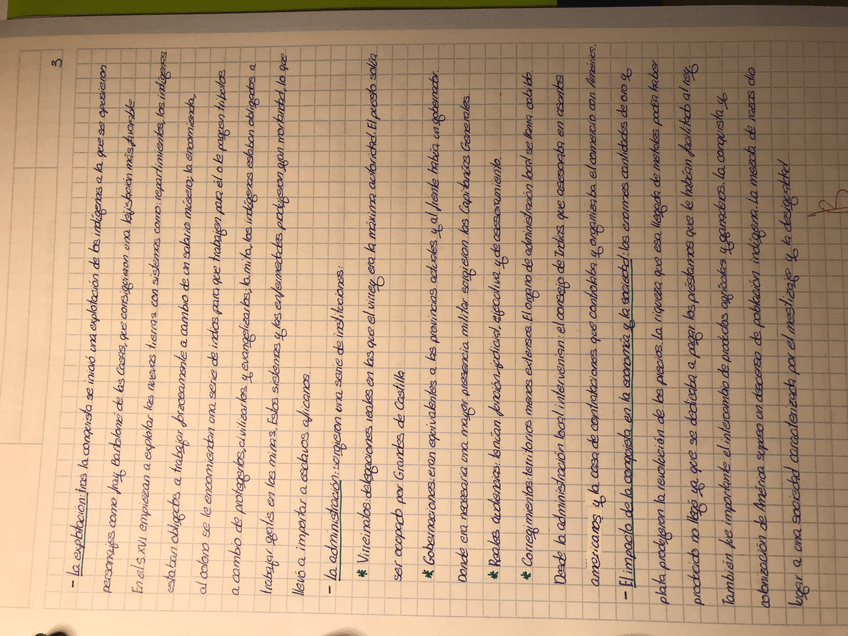 3
- La explotación: tras la conquista se inició una explotación de los indígenas a la que se opusieron
personajes como fray Bartolomé de las Casas, que consiguieron una legislación más favorable
En el s.XVI empiezan a explotar las nuevas tierras con sistemas como: repartimientos, los indígenas
estaban obligados a trabajar forzosamente a cambio de un salario mísero; la encomienda,
al colono se le encomiendan una serie de indios para que trabajen para él o le paguen tributos
a cambio de protegerlos, civilizarlos y evangelizarlos; la mita, los indígenas estaban obligados a
trabajar gratis en las minas. Estos sistemas y las enfermedades produjeron gran mortandad, lo que
llevó a importar a esclavos africanos.
- La administración: surgieron una serie de instituciones:
* Virreinatos: delegaciones reales en las que el virrey era la máxima autoridad. El puesto solía
ser ocupado por Grandes de Castilla
* Gobernaciones: eran equivalentes a las provincias actuales y al frente había un gobernador.
Donde era necesaria una mayor presencia militar surgieron las Capitanías Generales
* Reales audiencias: tenían función judicial, ejecutiva y de asesoramiento.
* Corregimientos: territorios menos extensos. El órgano de administración local se llama cabildo
Desde la administración local intervenían: el consejo de Indias que asesoraba en asuntos
americanos y la casa de contrataciones que controlaba y organizaba el comercio con América.
- El impacto de la conquista en la economía y la sociedad: las enormes cantidades de oro y
plata produjeron la revolución de los precios. La riqueza que esa llegada de metales podía haber
producido no llegó ya que se dedicaba a pagar los préstamos que le habían facilitado al rey.
También fue importante el intercambio de productos agrícolas y ganaderos. La conquista y
colonización de América supuso un descenso de población indígena. La mezcla de razas dio
lugar a una sociedad caracterizada por el mestizaje y la desigualdad